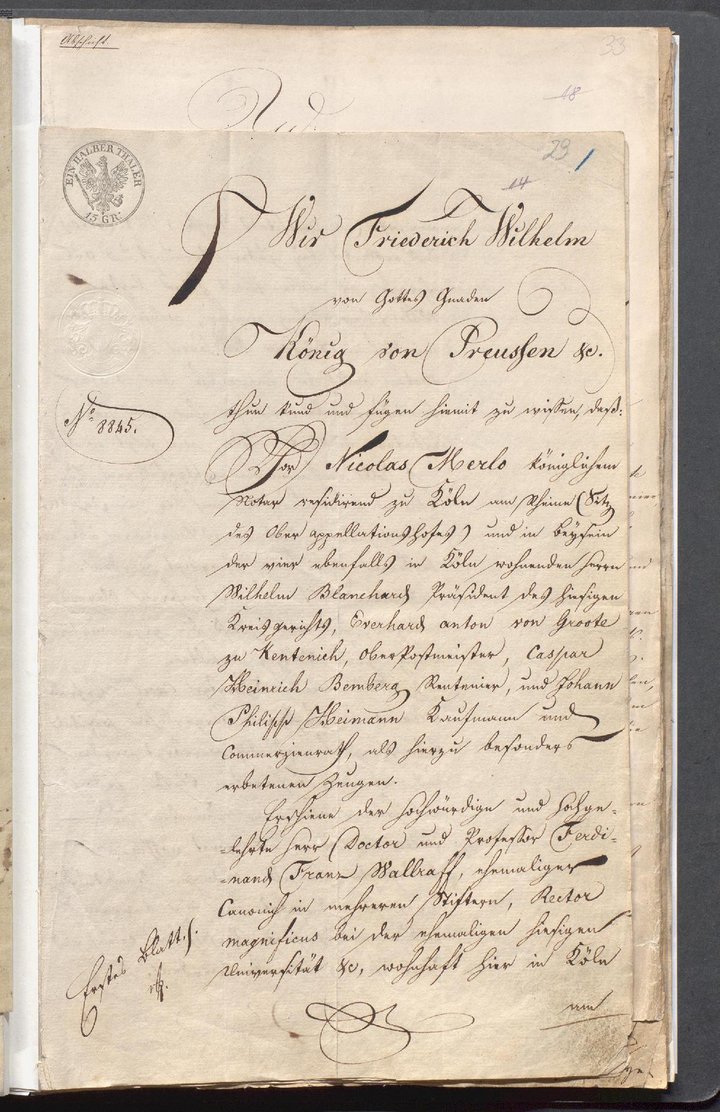 Abschrift.
33
18
23
1
14
EIN HALBER THALER
15 GR.
Wir Friederich Wilhelm
von Gottes Gnaden
König von Preussen &c.
thun kund und fügen hiemit zu wissen, daß:
No 8845.
Vor Nicolas Merlo königlichem
Notar residirend zu Köln am Rheine (Sitz
des Ober appellationshofes) und in beysein
der vier ebenfalls in Köln wohnenden Herrn
Wilhelm Blanchard Präsident des hiesigen
Kreisgerichts, Everhard anton von Groote
zu Kentenich, OberPostmeister, Caspar
Heinrich Bemberg Rentenier, und Johann
Philipp Heimann Kaufmann und
Commerzienrath, als hierzu besonders
erbetenen Zeugen.
Erschiene der hochwürdige und Hochge-
-lehrte Herr Doctor und Professor Ferdi-
-nand Franz Wallraff, ehemaliger
Canonich in mehreren Stiftern, Rector
magnificus bei der ehemaligen hiesigen
Universität &c, wohnhaft hier in Köln
am
Erstes Blatt.